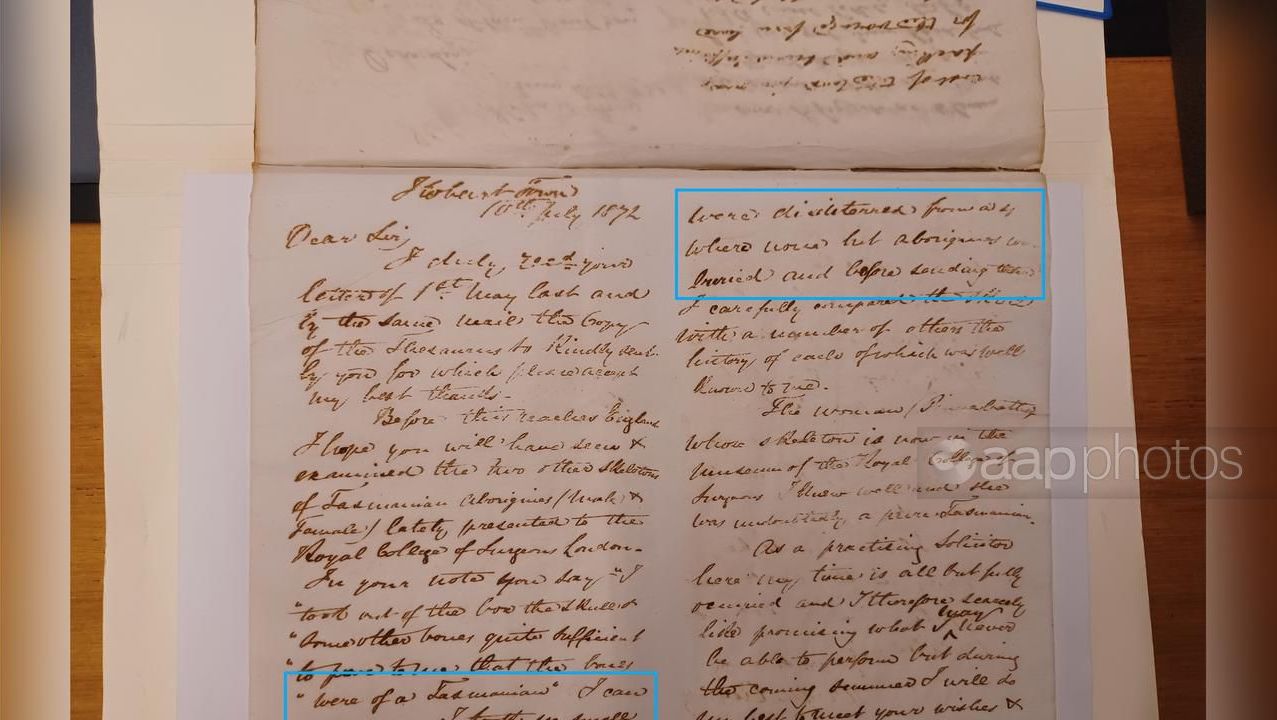 for the voyage from here
packing and
cost of
Hobart Town
10th July 1872
Dear Sir,
I duly recd your
letter of 1st May last and
by the same mail the Copy
of the Thesaurus so Kindly sent
by you for which please accept
my best thanks.
Before this reaches England
I hope you will have seen &
examined the two other skeletons
of Tasmanian Aborigines (Male &
Female) lately presented to the
Royal College of Surgeons London.
In your note you say "I
"took out of the box the skull &
"some other bones quite sufficient
"to prove to me that the bones
"were of a Tasmanian" I can
were disinterred from a
where none but aborigines
buried and before sending them
I carefully compared the
with a number of others the
history of each of which was well
Known to me.
The woman
whose skeleton is now in the
museum of the Royal College of
Surgeons I Knew well and she
was undoubtedly a pure Tasmanian.
As a practising Solicitor
here my time is all but fully
occupied and I therefore scarcely
like promising what I may never
be able to perform but during
the coming summer I will do
my best to meet your wishes &
aapphotos